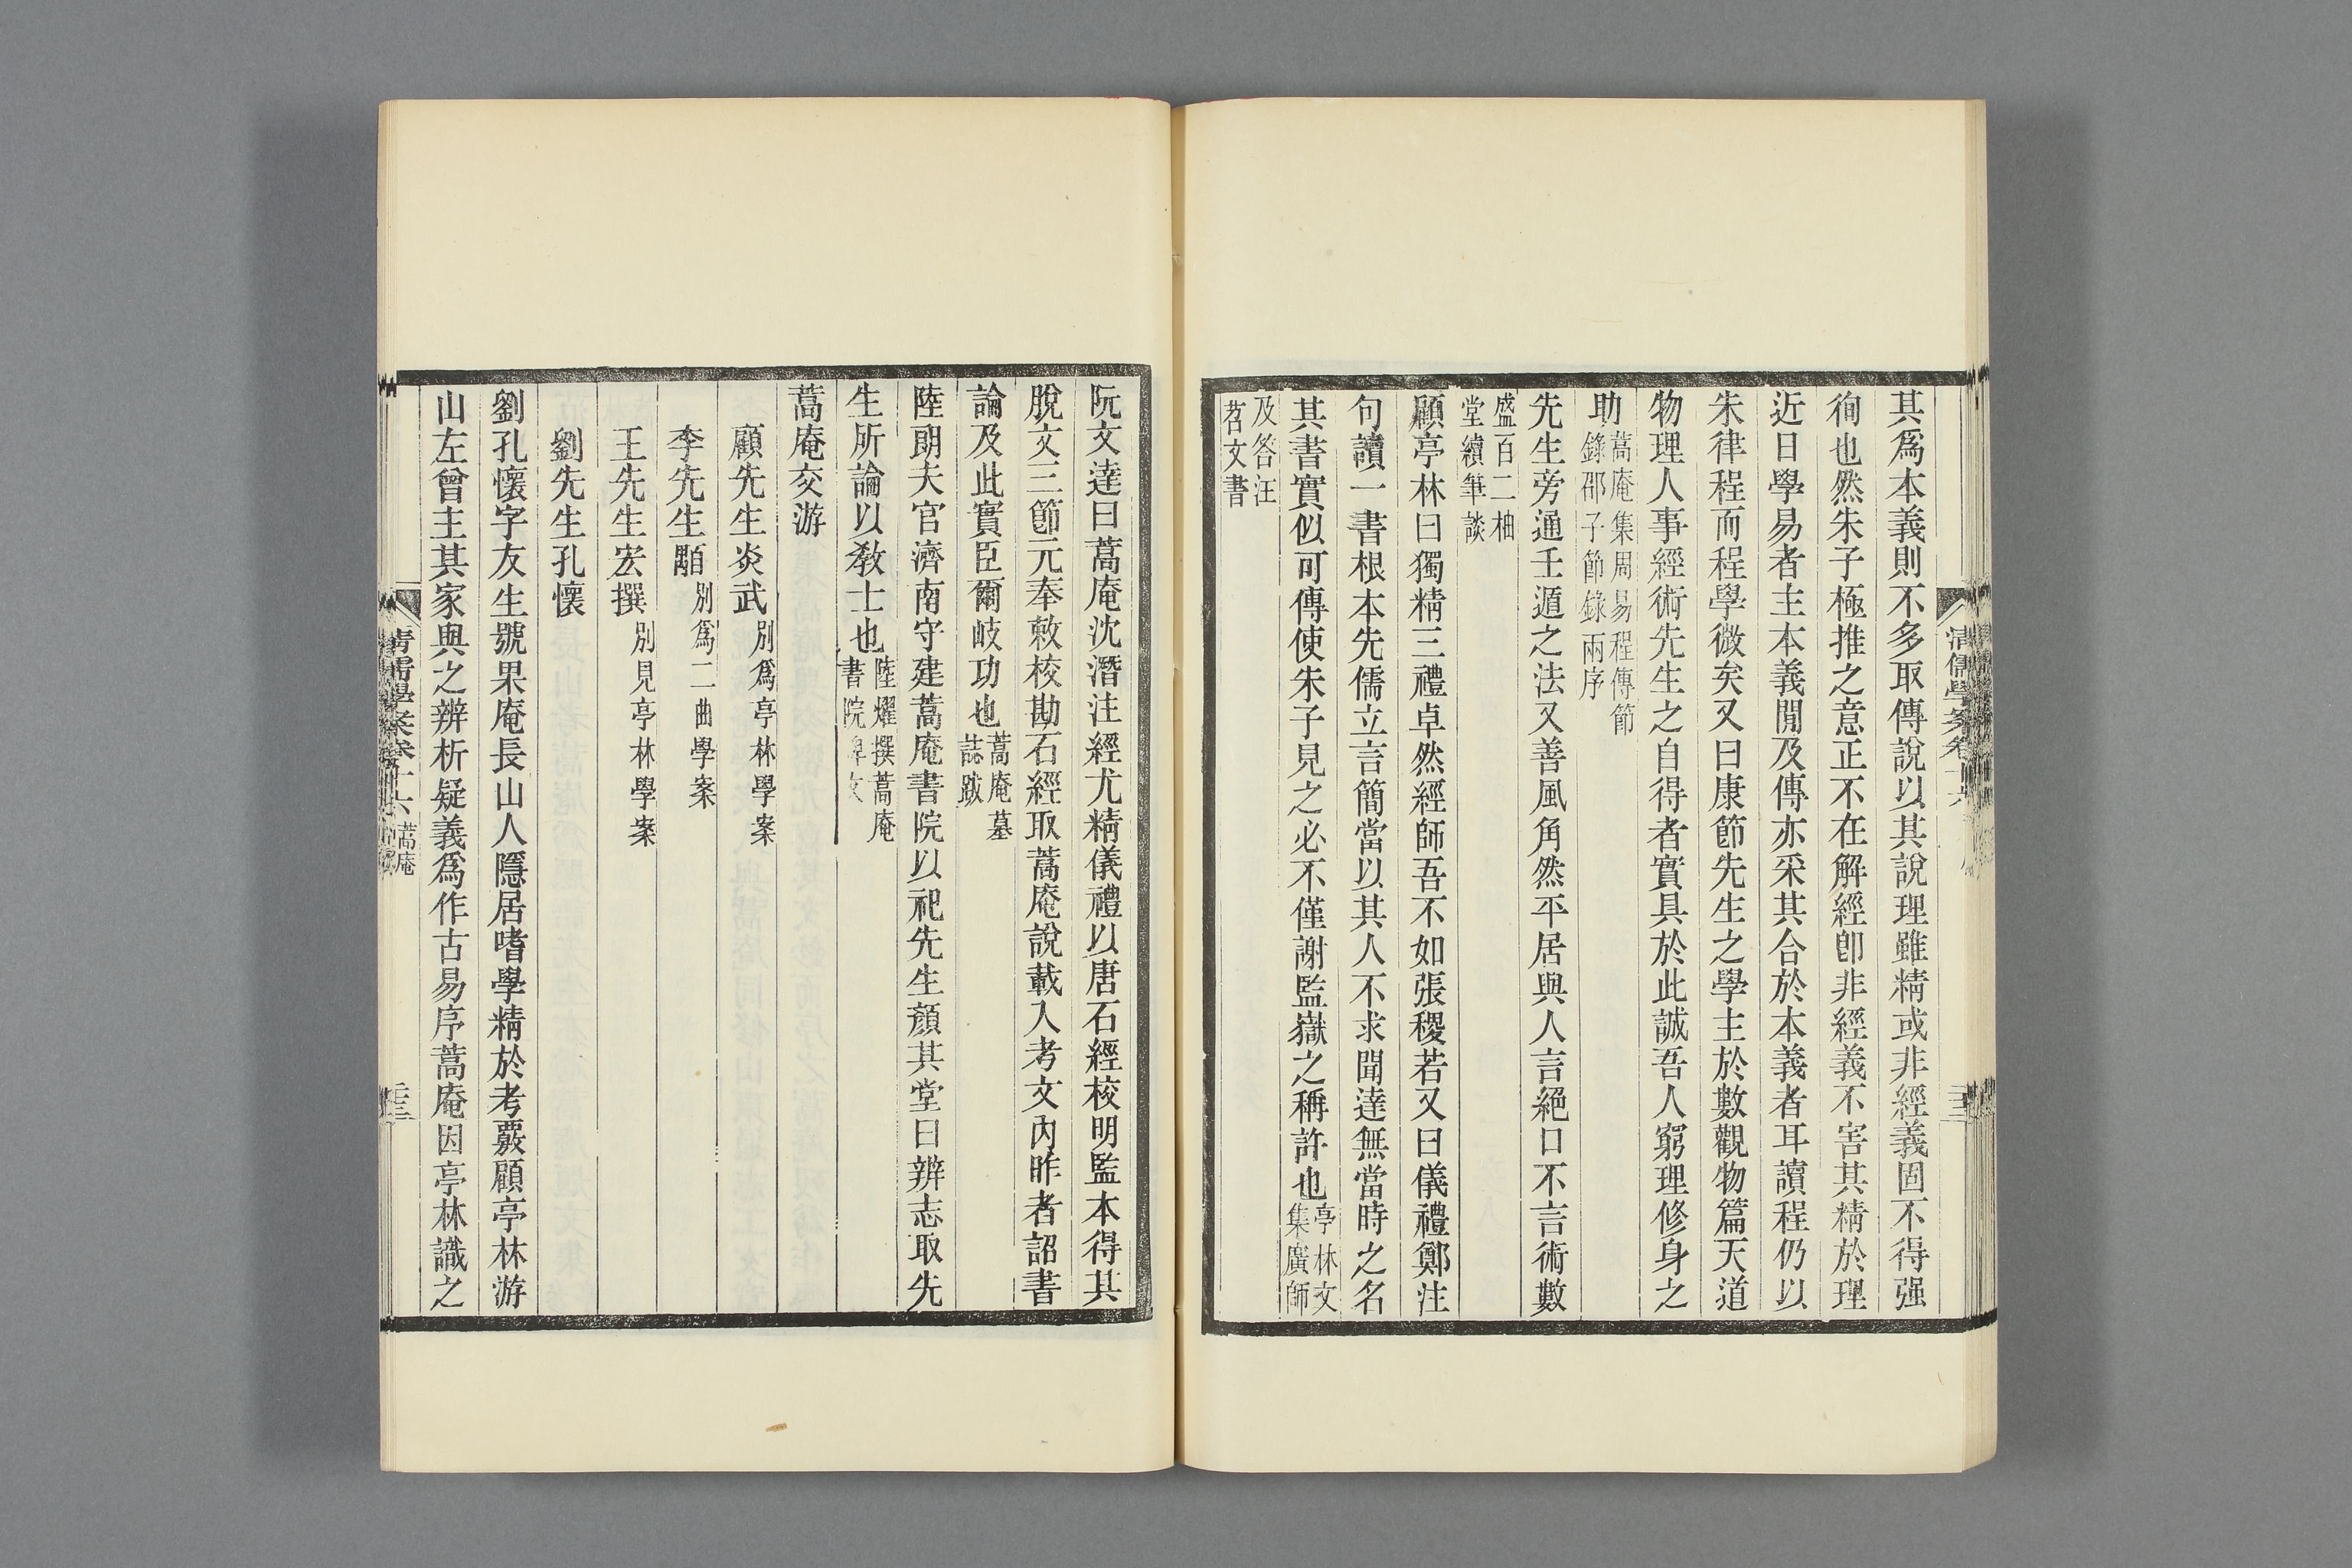 其爲本義則不多取傳說以其說理雖精或非經義固不得强
徇也然朱子極推之意正不在解經卽非經義不害其精於理
近日學易者主本義閒及傳亦采其合於本義者耳讀程仍以
朱律程而程學微矣又曰康節先生之學主於數觀物篇天道
物理人事經術先生之自得者實具於此誠吾人窮理修身之
助蒿庵集周易程傳節錄邵子節錄兩序
先生旁通壬遁之法又善風角然平居與人言絕口不言術數
盛百二柚堂續筆談
顧亭林曰獨精三禮卓然經師吾不如張稷若又曰儀禮鄭注
句讀一書根本先儒立言簡當以其人不求聞達無當時之名
其書實似可傳使朱子見之必不僅謝監嶽之稱許也亭林文集廣師
及答汪苕文書
阮文達曰蒿庵沈潛注經尤精儀禮以唐石經校明監本得其
脫文三節元奉敕校勘石經取蒿庵說載入考文內昨者詔書
論及此實臣爾岐功也蒿庵墓誌跋
陸朗夫官濟南守建蒿庵書院以祀先生顏其堂曰辨志取先
生所論以敎士也陸燿撰蒿庵書院碑文
蒿庵交游
顧先生炎武別爲亭林學案
李先生顒別爲二曲學案
王先生宏撰別見亭林學案
劉先生孔懷
劉孔懷字友生號果庵長山人隱居嗜學精於考覈顧亭林游
山左曾主其家與之辨析疑義爲作古易序蒿庵因亭林識之
清儒學案卷十六蒿庵